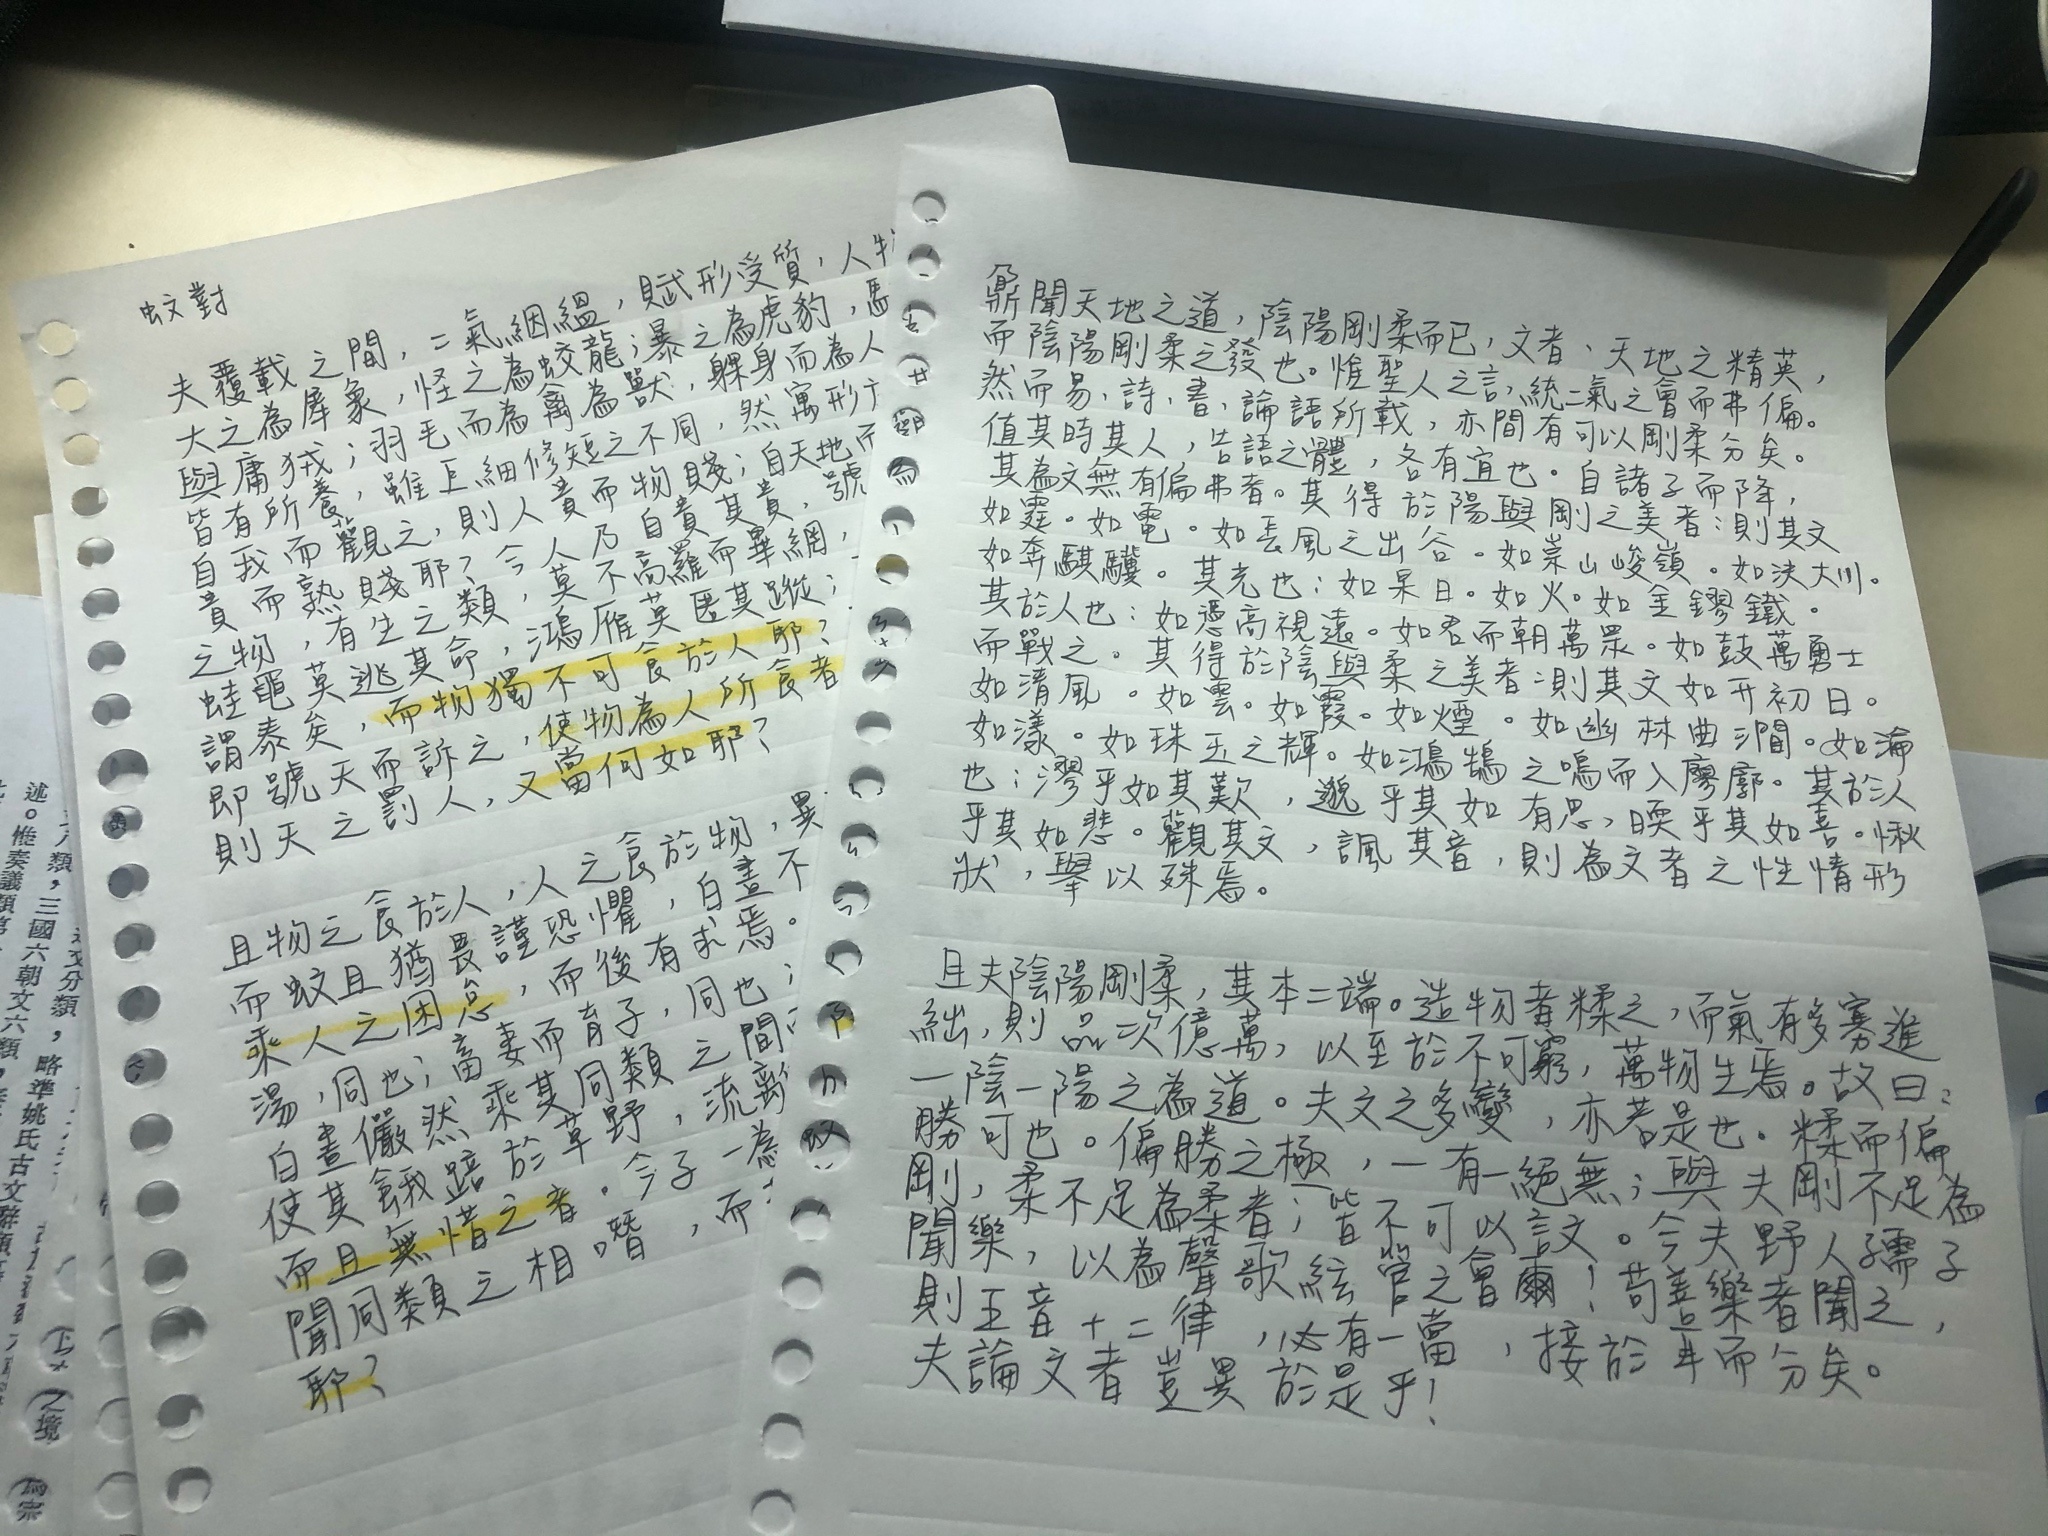 蚊對
夫覆載之間，二氣絪縕，賦形受質，人物
大之為犀象，怪之為蛟龍；暴之為虎豹，
與庸狨；羽毛而為禽為獸，躶身而為人
皆有所養，雖巨細修短之不同，然寓形
自我而觀之，則人貴而物賤；自天地而
貴而熟賤耶？今人乃自貴其貴，號
之物，有生之類，莫不高羅而畢網，
蛙黽莫逃其命，鴻雁莫匿其蹤；
謂泰矣，而物獨不可食於人耶？
即號天而訴之，使物為人所食者
則天之罰人，又當何如耶？
且物之食於人，人之食於物，異
而蚊且猶畏謹恐懼，白晝不
乘人之困怠，而後有求焉。
湯，同也；畜妻而育子，同也；
白晝儼然乘其同類之間
使其餓踣於草野，流離
而且無惜之者。今子一為
聞同類之相嘬，而
耶？
鼐聞天地之道，陰陽剛柔而已，文者、天地之精英，
而陰陽剛柔之發也。惟聖人之言，統二氣之會而弗偏。
然而易、詩、書、論語所載，亦間有可以剛柔分矣。
值其時其人，告語之體，各有宜也。自諸子而降，
其為文無有偏弗者。其得於陽與剛之美者：則其文
如霆。如電。如長風之出谷。如崇山峻嶺。如決大川。
如奔騏驥。其光也：如杲日。如火。如金鏐鐵。
其於人也：如憑高視遠。如君而朝萬眾。如鼓萬勇士
而戰之。其得於陰與柔之美者：則其文如升初日。
如清風。如雲。如霞。如煙。如幽林曲澗。如淪
如漾。如珠玉之輝。如鴻鵠之鳴而入廖廓。其於人
也；漻乎如其歎，邈乎其如有思，暖乎其如喜。愀
乎其如悲。觀其文，諷其音，則為文者之性情形
狀，舉以殊焉。
且夫陰陽剛柔，其本二端。造物者糅之，而氣有多寡進
絀，則品次億萬，以至於不可窮，萬物生焉。故曰：
一陰一陽之為道。夫文之多變，亦若是也。糅而偏
勝可也。偏勝之極，一有一絕無；與夫剛不足為
剛，柔不足為柔者；皆不可以言文。今夫野人孺子
聞樂，以為聲歌絃管之會爾！苟善樂者聞之，
則五音十二律，必有一當，接於耳而分矣。
夫論文者豈異於是乎！